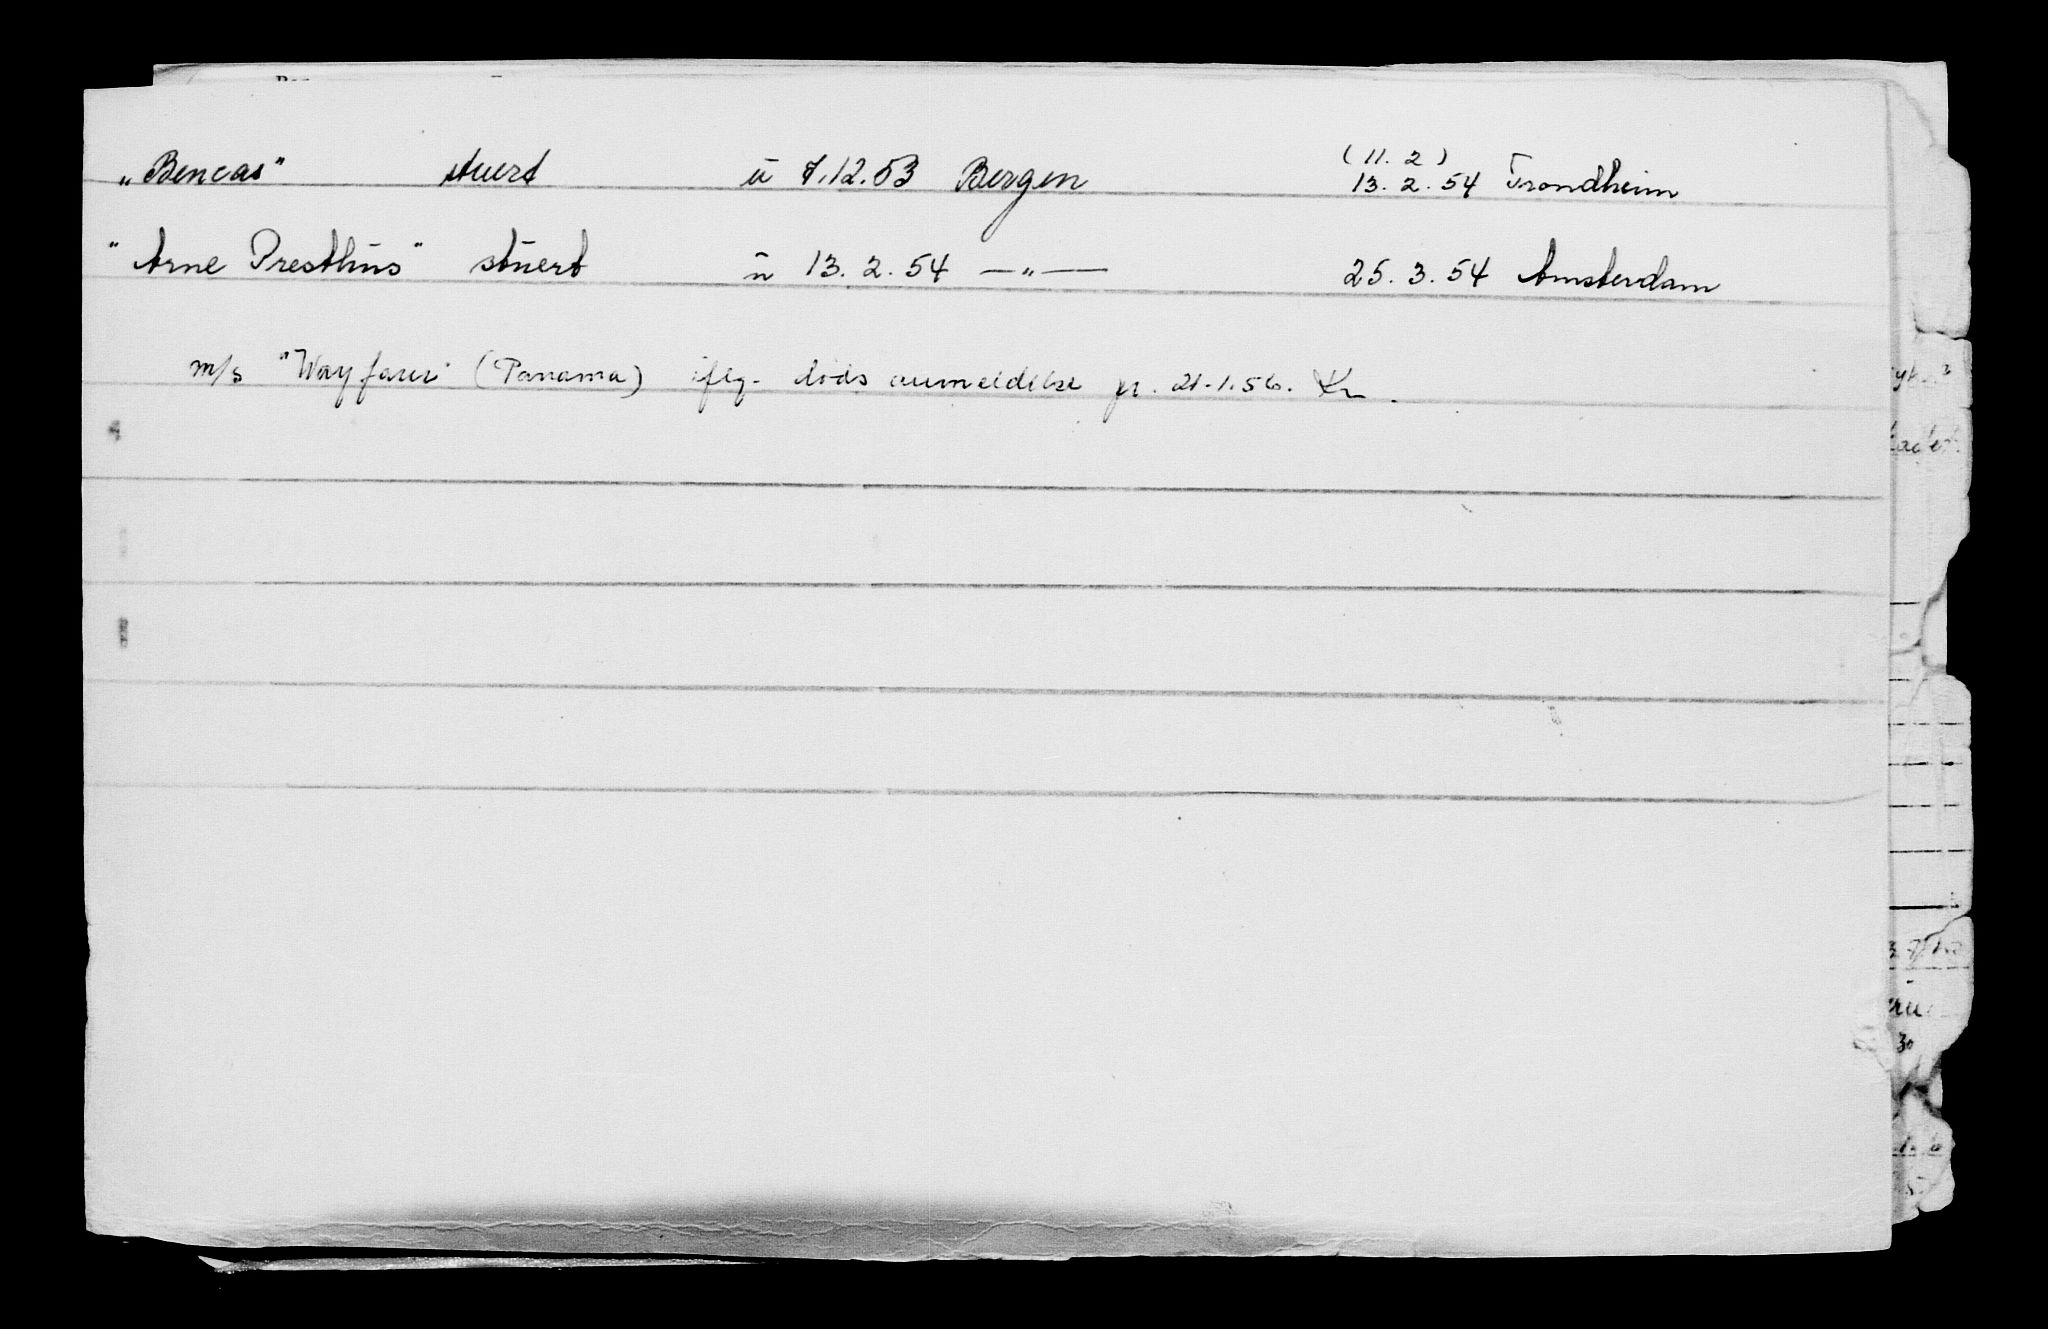 „Bencas" stuert u 7.12.53 Bergen (11. 2) 13. 2. 54 Trondheim
"Arne Presthus" stuert u 13. 2. 54 —„— 25. 3. 54 Amsterdam
m/s "Wayfarer" (Panama) iflg. døds anmeldelse pr. 21.1.56. Kr.